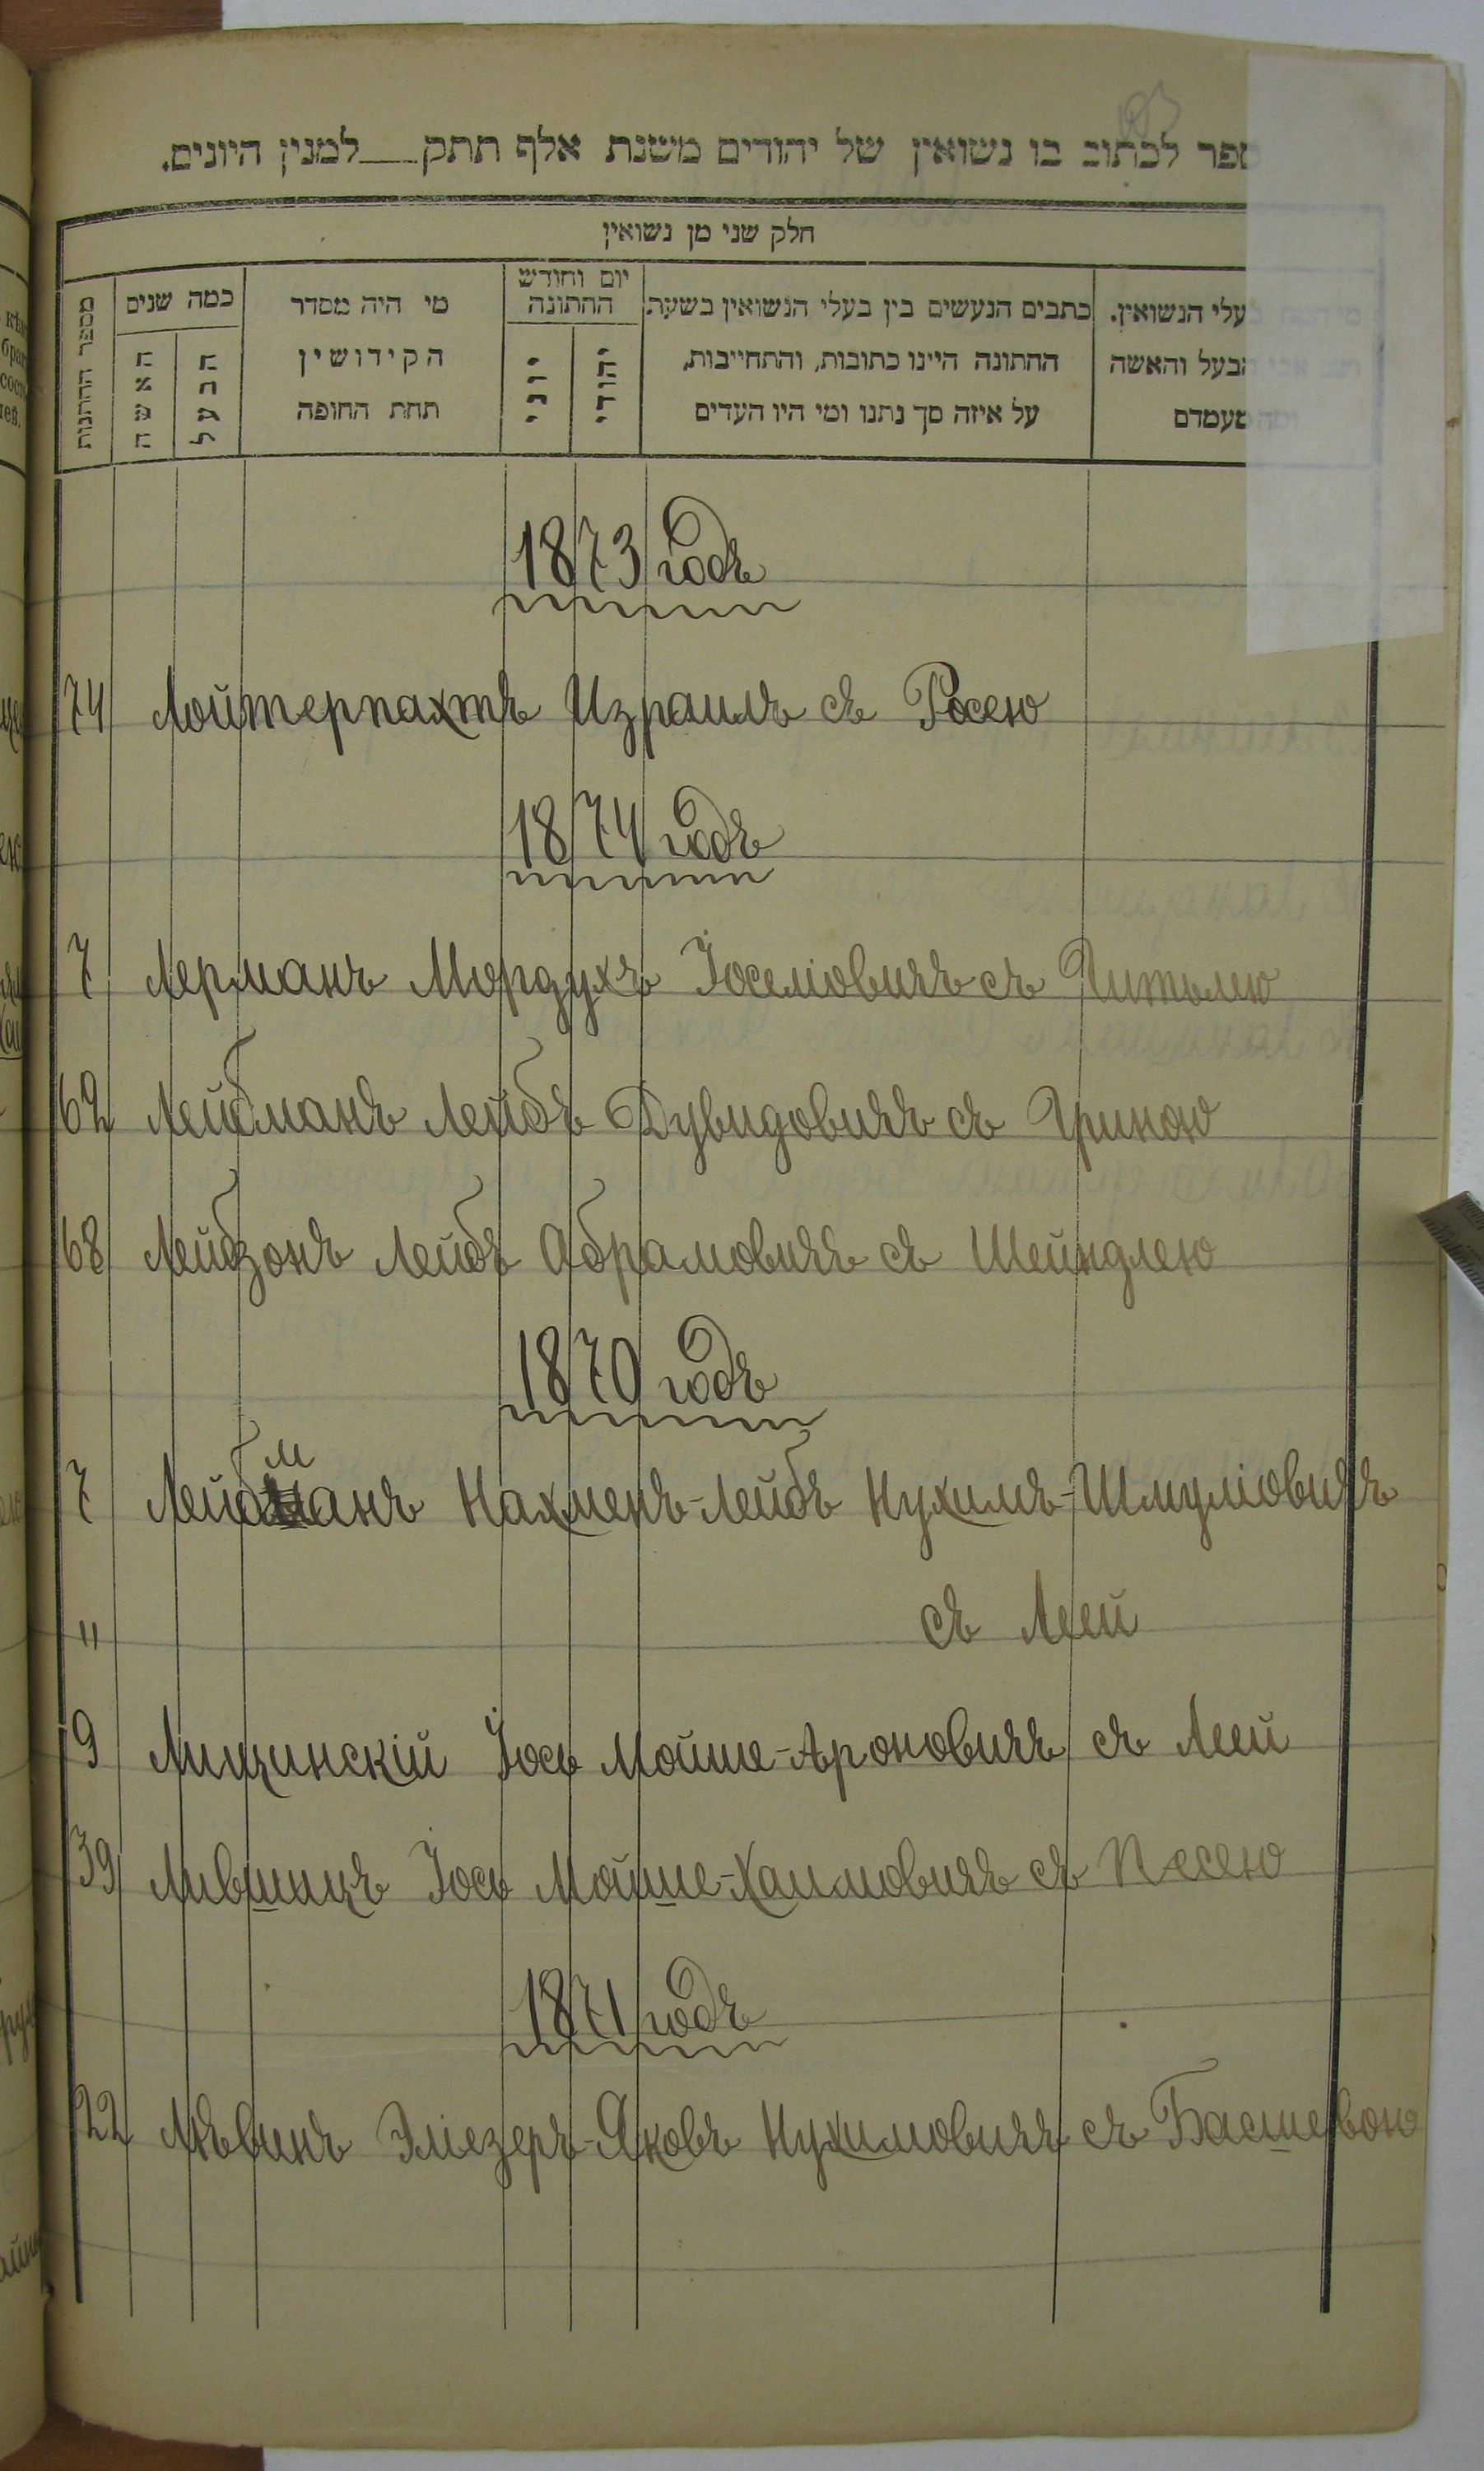 ספר לכתוב בו נשואין של יהודים משנת אלף תתק___למנין היונים.
חלק שני מן נשואין
בעלי הנשואין.
הבעל והאשה
ומה מעמדם
כתבים הנעשים בין בעלי הנשואין בשעת
החתונה היינו כתובות, והתחייבות,
על איזה סך נתנו ומי היו העדים
יום וחודש
החתונה
יהודי
יוני
מי היה מסדר
הקידושין
תחת החופה
כמה שנים
הבעל
האשה
מספר החתונות
1873 годъ
74 Лойтерпахтъ Израиль съ Росею
1874 годъ
7 Лерманъ Мордухъ Іоселіовичъ съ Читылею
62 Лейбманъ Лейбъ Дувидовичъ съ Цриною
68 Лейбзонъ Лейбъ Абрамовичъ съ Шейндлею
1870 годъ
7 Лейбманъ Нахменъ-Лейбъ Нухимъ-Шмуліовичъ
" съ Леей
9 Лищинскій Іось Мойше-Ароновичъ съ Леей
39 Лившицъ Іось Мойше-Хаимовичъ съ Песею
1871 годъ
22 Лѣвинъ Эліезеръ-Яковъ Нухимовичъ съ Басшевою